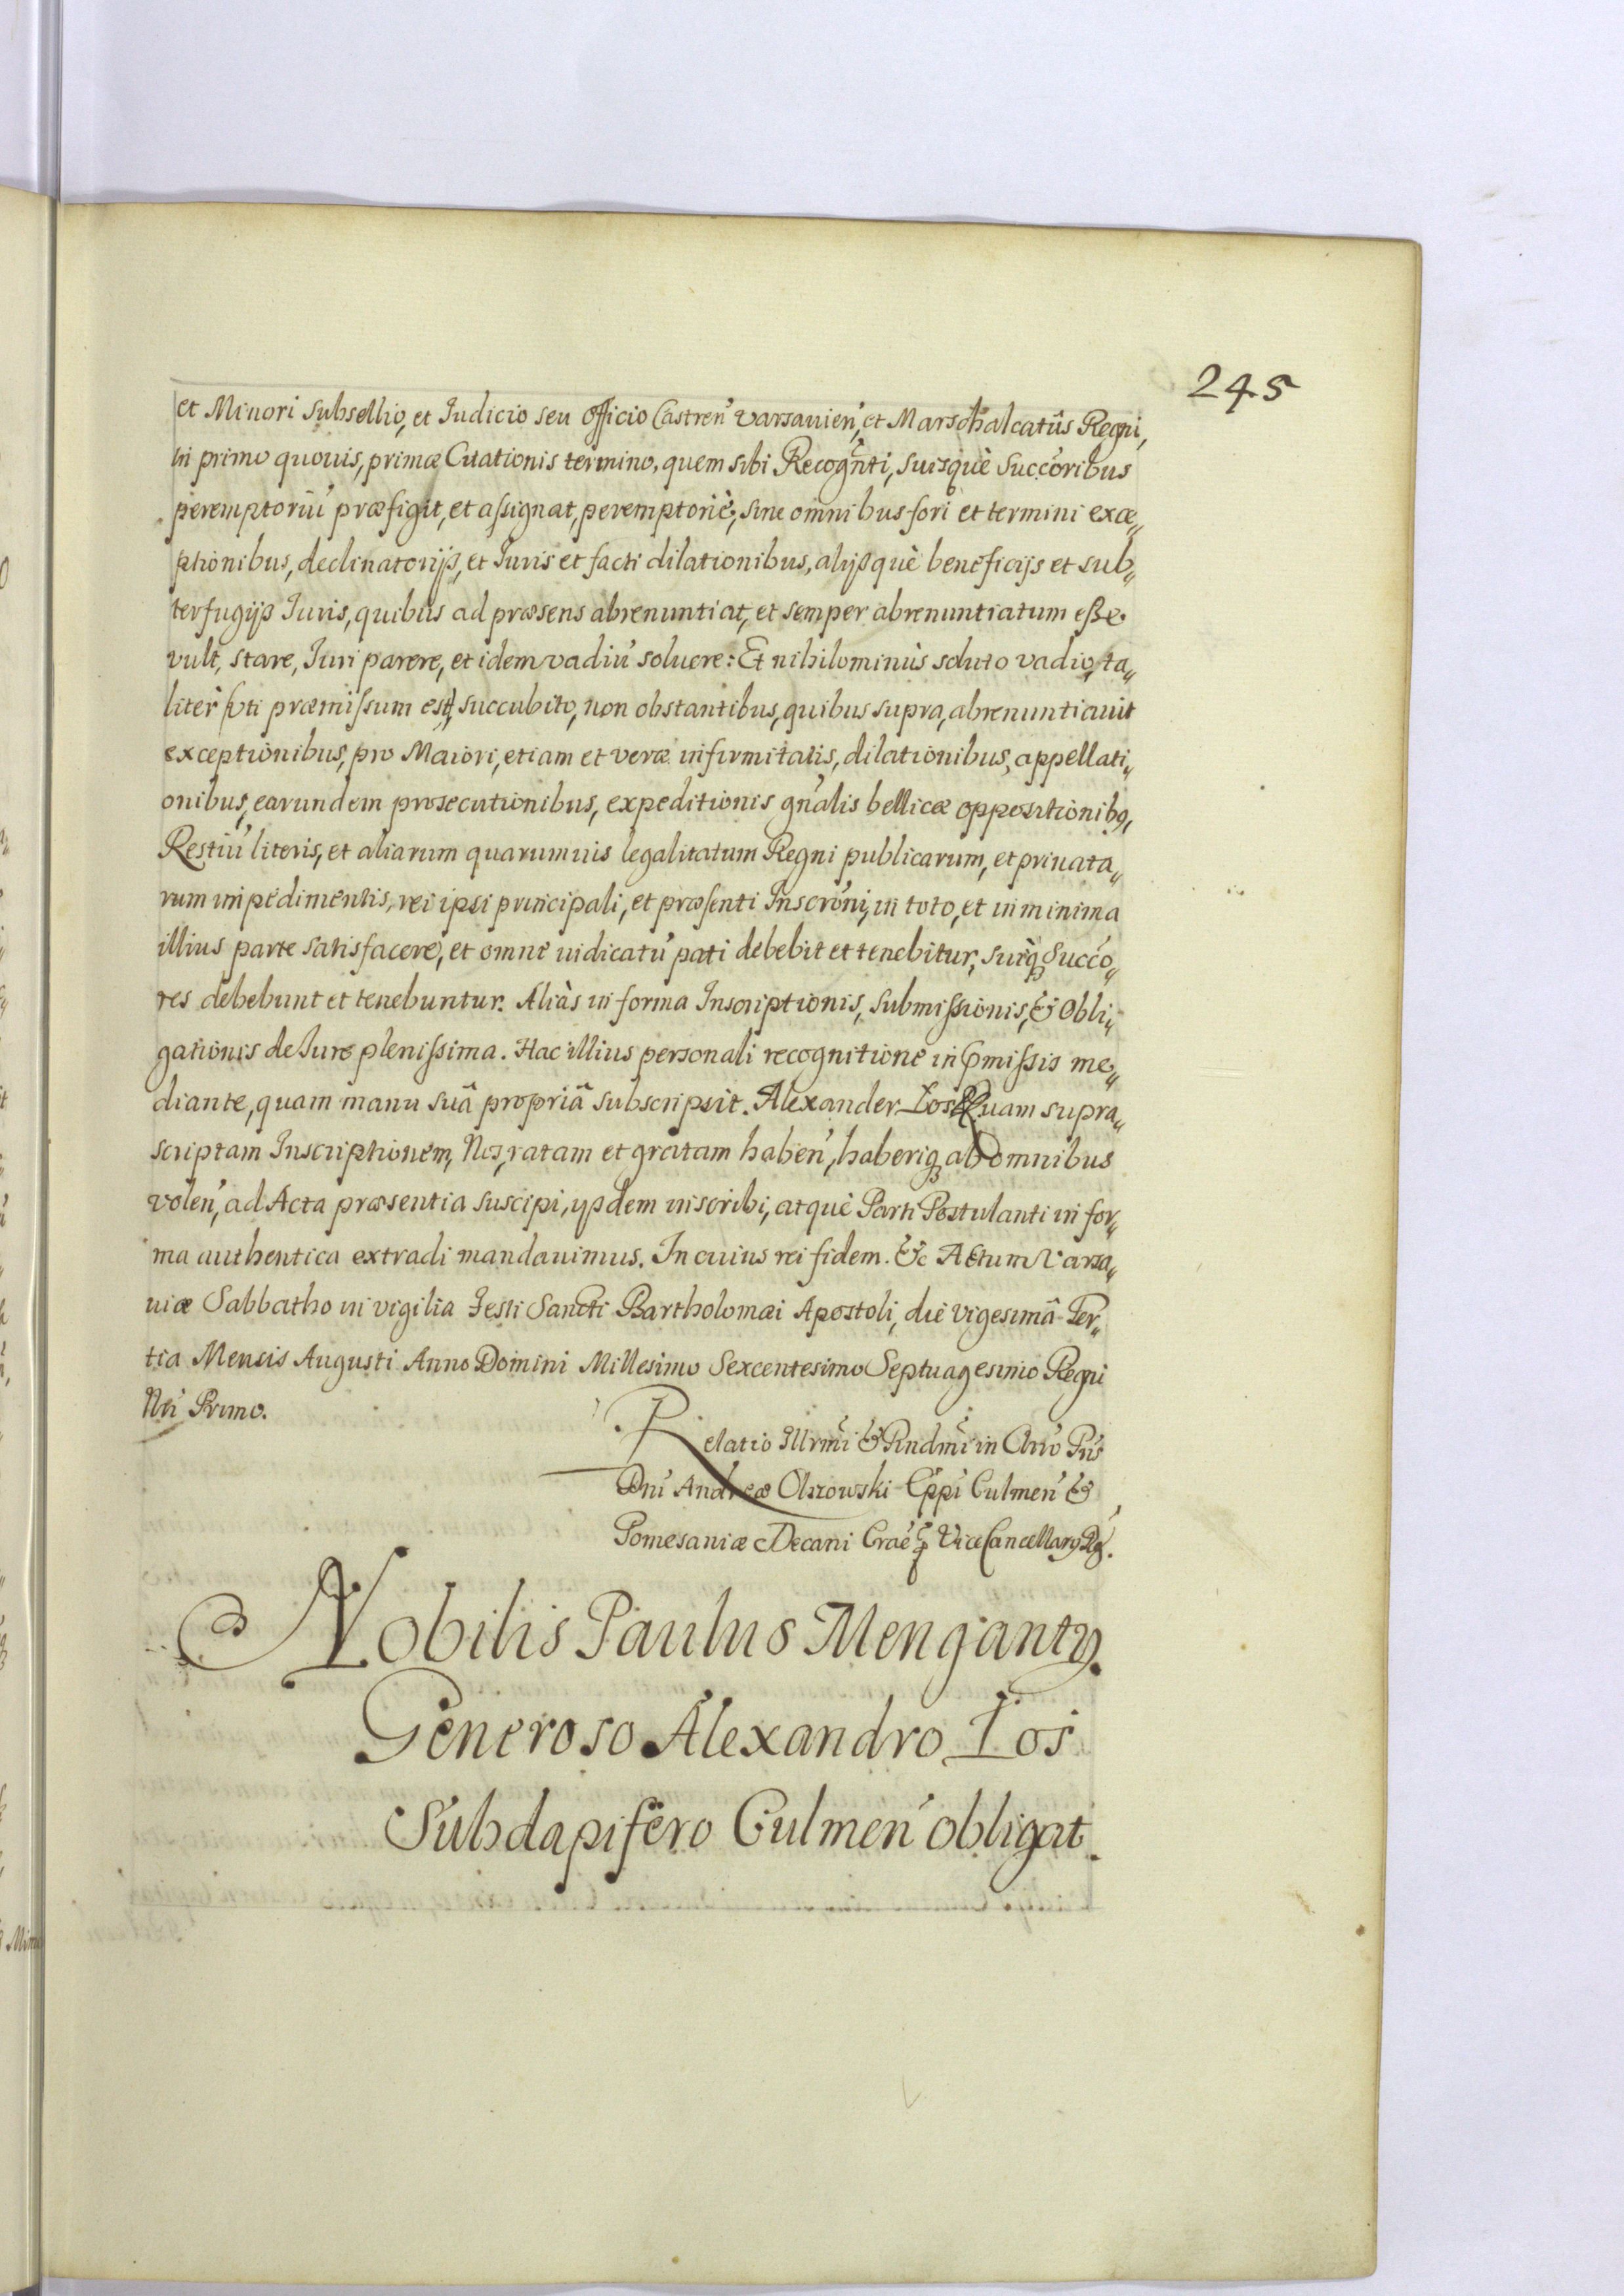 245
et Minori Subsellio, et Iudicio seu Officio Castren̄ Varsavien̄, et Marschalcatûs Regni,
in primo quouis, primæ Citationis termino, quem sibi Recogn̄ti, suisquè Succ̄oribus
peremptoriū præfigit, et assignat, peremptoriè, sine omnibus fori et termini exce„
ptionibus, declinatorijs, et Iuris et facti dilationibus, alijsquè beneficijs et sub„
terfugijs Iuris, quibus ad præsens abrenuntiat, et semper abrenuntiatum esse
vult, stare, Iuri parere, et idem vadiū soluere: Et nihilominùs soluto vadio, ta„
litèr (vti præmissum est) succubito, non obstantibus, quibus supra, abrenuntiauit
exceptionibus, pro Maiori, etiam et veræ infirmitatis, dilationibus, appellati„
onibus, earundem prosecutionibus, expeditionis gn̄alis bellicæ oppositionibꝰ,
Restiū literis, et aliarum quarumuis legalitatum Regni publicarum, et priuata„
rum impedimentis, rei ipsi principali, et præsenti Inscrōni, in toto, et in minima
illius parte satisfacere, et omne iudicatū pati debebit et tenebitur, suiq̃ Succ̄o„
res debebunt et tenebuntur. Aliàs in forma Inscriptionis, Submissionis, & Obli„
gationis de Iure plenissima. Hac illius personali recognitione in p̄missis me„
diante, quam manu suâ propriâ subscripsit. Alexander Łoś Quam supra„
scriptam Inscriptionem, Nos, ratam et gratam haben̄, haberiq̃ ab omnibus
volen̄, ad Acta præsentia suscipi, ijsdem inscribi, atquè Parti Postulanti in for„
ma authentica extradi mandauimus. In cuius rei fidem. &c Actum Varsa„
uiæ Sabbatho in vigilia Festi Sancti Bartholomæi Apostoli, die vigesimâ Ter„
tia Mensis Augusti Anno Domini Millesimo Sexcentesimo Septuagesimo Regni
Nr̄i Primo.
Relatio Illrmi & Rndmi in Chr̄o Pr̄is
Dn̄i Andreæ Olszowski Ep̄pi Culmen̄ &
Pomesaniæ Decani Crac̄ ViceCancellarij Rḡ.
Nobilis Paulus Mengantꝰ.
Generoso Alexandro Łoś
Subdapifero Culmen̄ obligat.